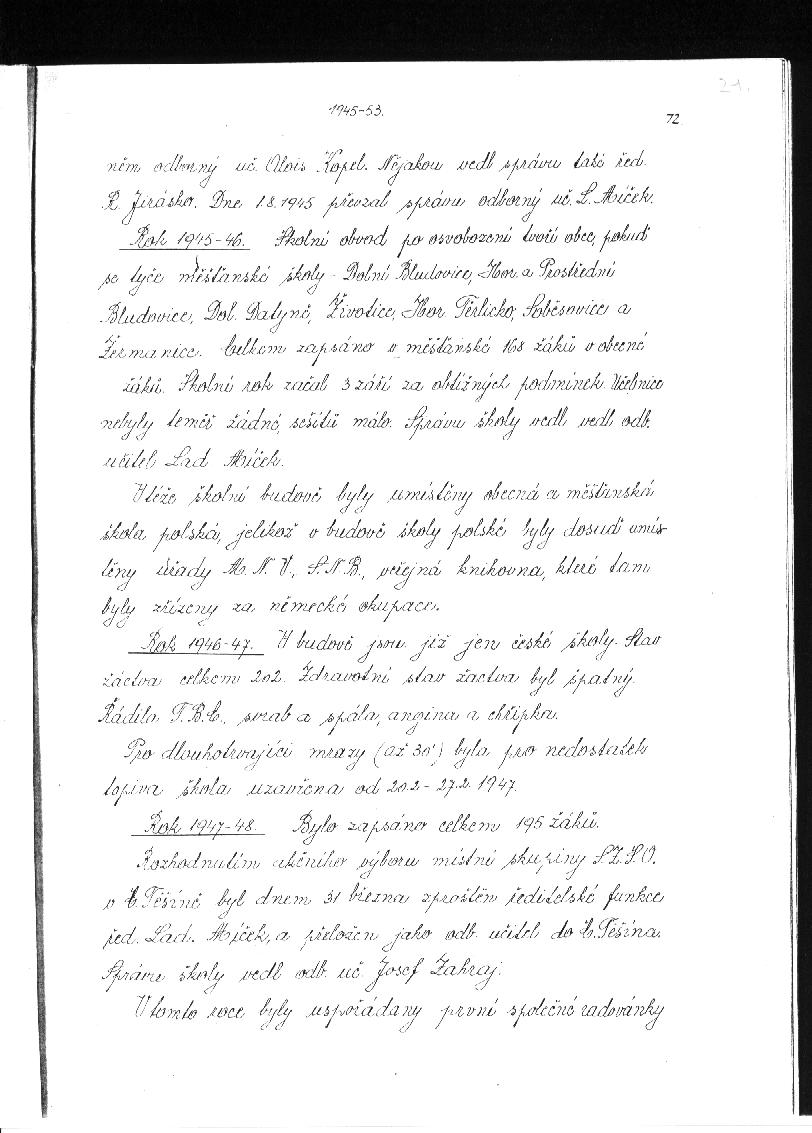 21.
1945-53.
72
něm odborný uč. Alois Kopel. Nějakou vedl správu také řed.
R. Jirásko. Dne 1.8.1945 převzal správu odborný uč. L. Míček.
Rok 1945-46. Školní obvod po osvobození tvoří obce, pokud
se týče měšťanské školy - Dolní Bludovice, Hor. a Prostřední
Bludovice, Dol. Datyně, Životice, Hor. Těrlicko, Soběšovice a
Žermanice. Celkem zapsáno v měšťanské 168 žáků v obecné
žáků. Školní rok začal 3 září za obtížných podmínek. Učebnice
nebyly téměř žádné, sešitů málo. Správu školy vedl vedl odb.
učitel Lad Míček.
V téže školní budově byly umístěny obecná a měšťanská
škola polská, jelikož v budově školy polské byly dosud umís-
těny úřady M. N. V., S.N.B., veřejná knihovna, které tam
byly zřízeny za německé okupace.
Rok 1946-47. V budově jsou již jen české školy. Stav
žáctva celkem 202. Zdravotní stav žactva byl špatný.
Řádila T.B.C., svrab a spála, angina a chřipka.
Pro dlouhotrvající mrazy (až 30°) byla pro nedostatek
topiva škola uzavřena od 20.2. - 27.2. 1947.
Rok 1947-48. Bylo zapsáno celkem 195 žáků.
Rozhodnutím akčního výboru místní skupiny S.Z.S.O.
v Č. Těšíně byl dnem 31 března zproštěn ředitelské funkce
řed. Lad. Míček, a přeložen jako odb. učitel do Č. Těšína.
Správu školy vedl odb. uč. Josef Zahraj.
V tomto roce byly uspořádany první společné radovánky